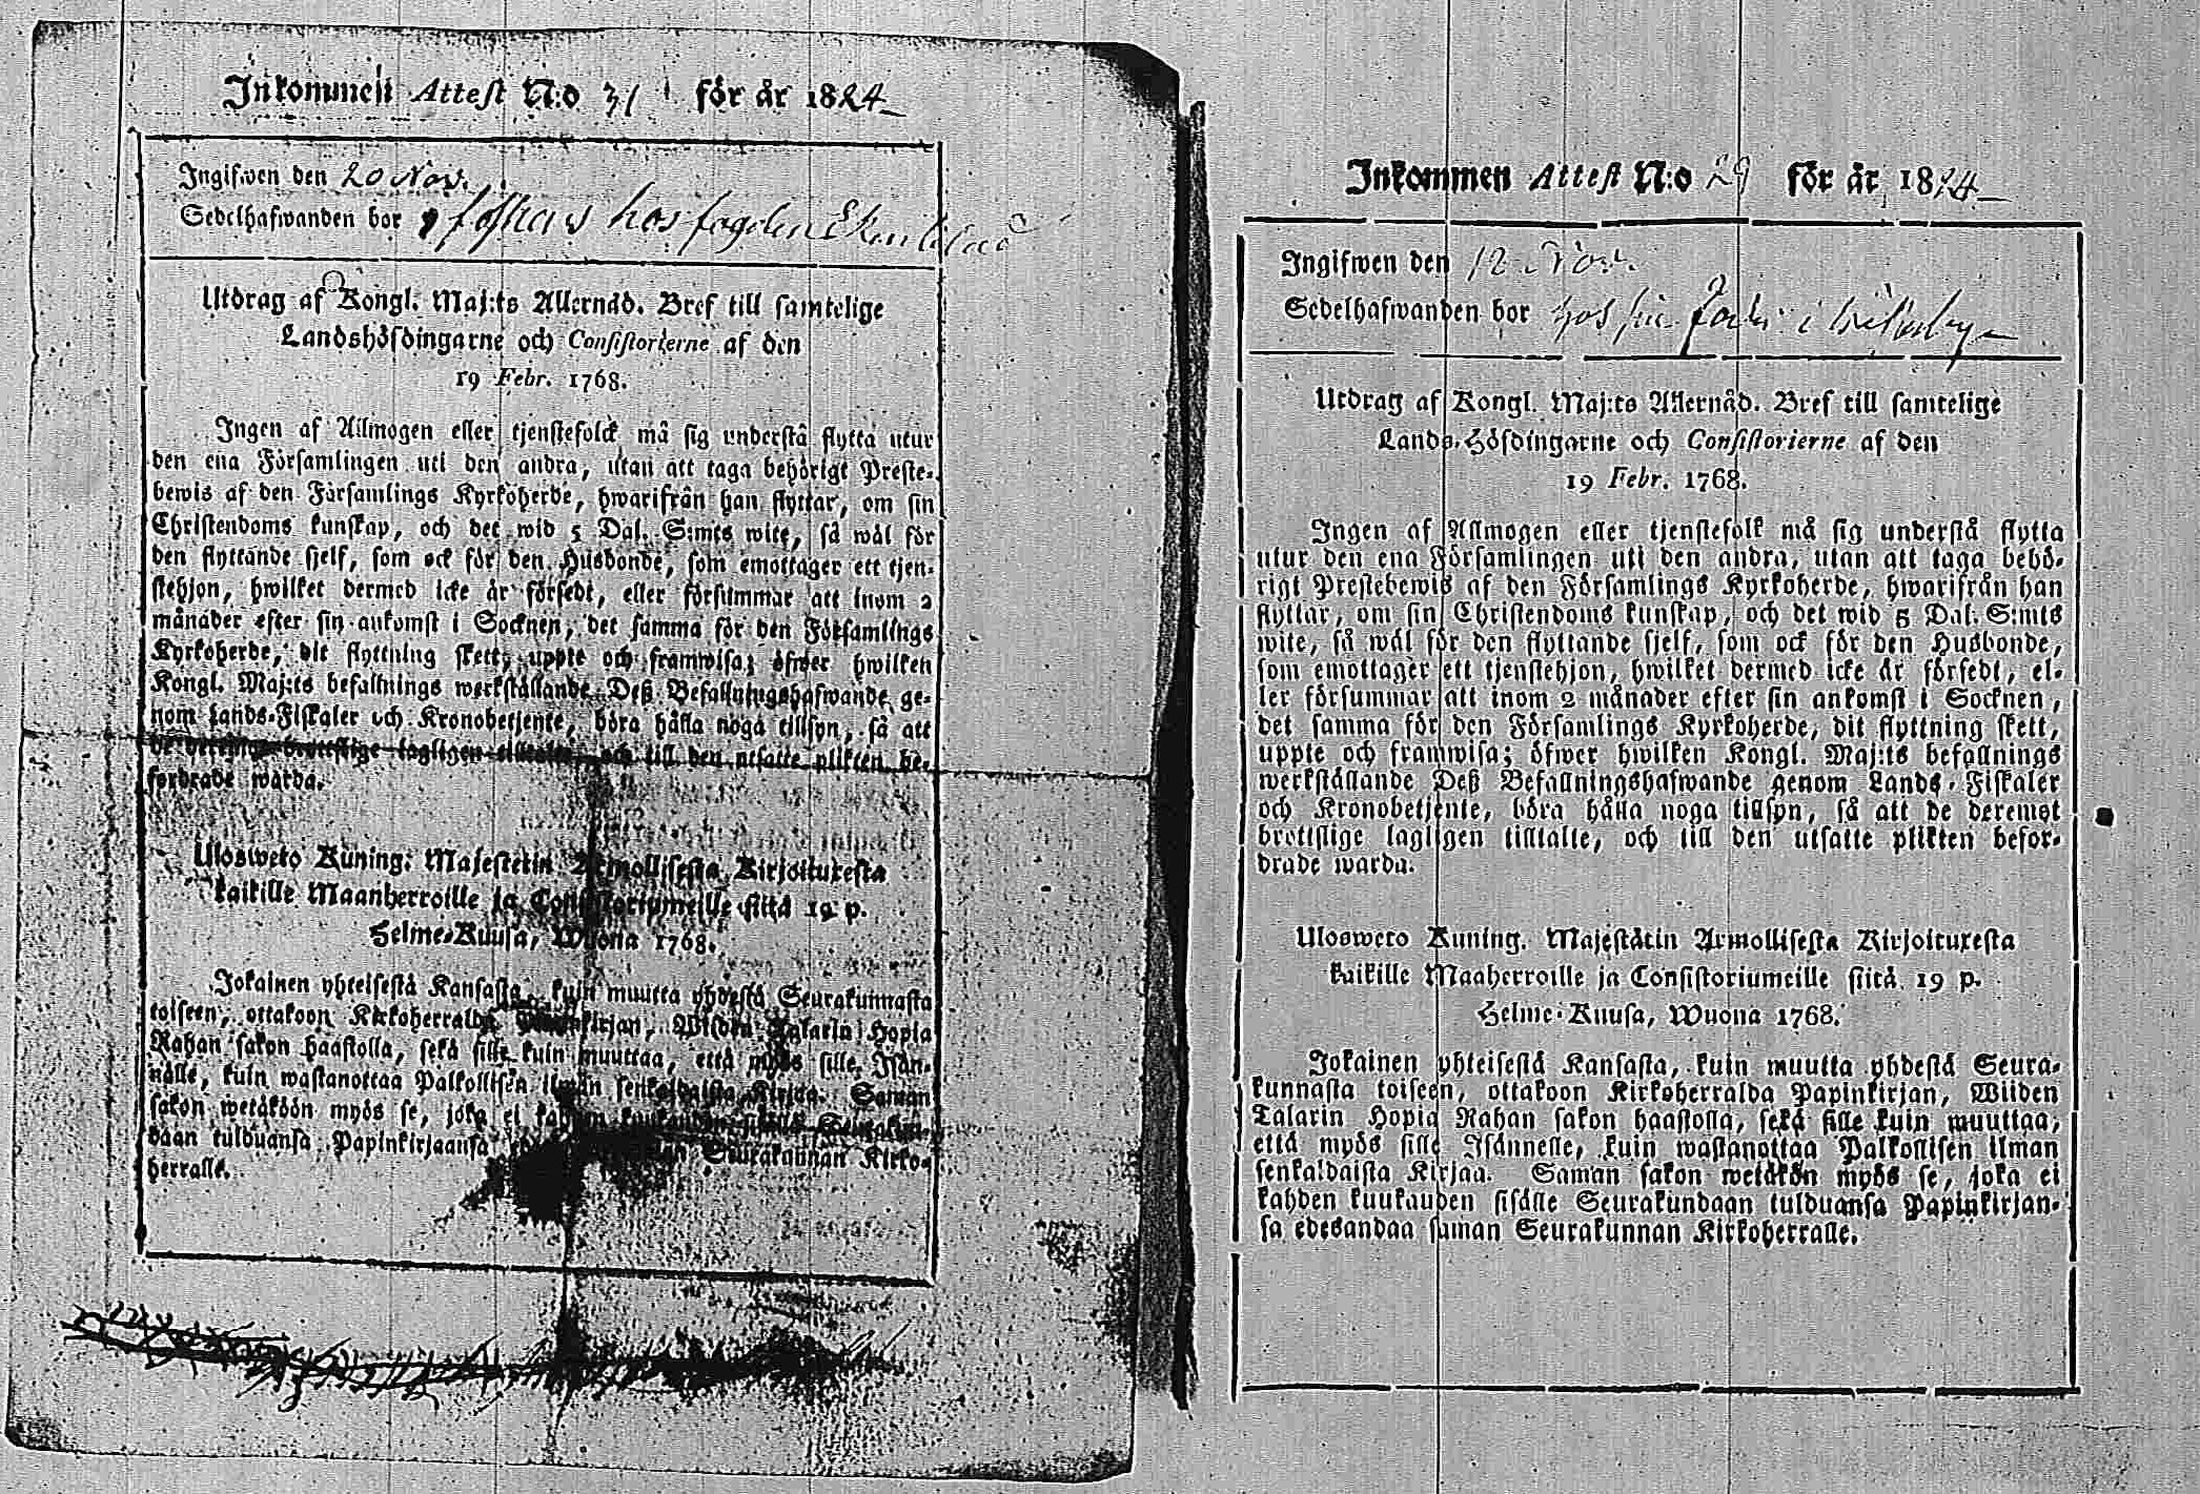 Inkommen Attest N:o 31 för år 1824
Ingifwen den 20 Nov.
Sedelhafwanden bor hos
Utdrag af Kongl. Maj:ts Allernåd. Bref till samtelige
Landshöfdingarne och Consistorierne af den
19 Febr. 1768.
Ingen af Allmogen eller tjenstefolck må sig understå flytta utur
den ena Församlingen uti den andra, utan att taga behörigt Preste-
bewis af den Församlings Kyrkoherde, hwarifrån han flyttar, om sin
Christendoms kunskap, och det wid 5 Dal. S:mts wite, så wäl för
den flyttande sjelf, som ock för den Husbonde, som emottager ett tjen-
stehjon, hwilket dermed icke är försedt, eller försummar att inom 2
månader efter sin ankomst i Socknen, det samma för den Församlings
Kyrkoherde, dit flyttning skett, uppte och framwisa; öfwer hwilken
Kongl. Maj:ts befallnings werkställande Deß Befallningshafwande ge-
nom Lands-Fiskaler och Kronobetjente, böra hålla noga tillsyn, så att
de brottslige lagligen och till den utsatte plikten be-
fordrade warda.
Ulosweto Kuning. Majestetin Armollisesta Kirjoituxesta
kaikille Maanherroille ja Consistoriumeille siitä 19 p.
Helme-Kuusa, Wuona 1768.
Jokainen yhteisestä Kansasta, kuin muutta yhdestä Seurakunnasta
toiseen, ottakoon Kirkoherralda Papinkirjan, Wiiden Talarin Hopia
Rahan sakon haastolla, sekä sille kuin muuttaa, että myös sille Isän-
nälle, kuin wastanottaa Palkollisen ilman senkaldaista Kirjaa. Saman
sakon wetäköön myös se, joka ei kahden kuukauden sisälle Seurakun-
daan tulduansa Papinkirjaansa Seurakunnan Kirko-
herralle.
Inkommen Attest N:o 29 för år 1824
Ingifwen den 12 Nov.
Sedelhafwanden bor hos sin fader i
Utdrag af Kongl. Maj:ts Allernåd. Bref till samtelige
Lands-Höfdingarne och Consistorierne af den
19 Febr. 1768.
Ingen af Allmogen eller tjenstefolk må sig understå flytta
utur den ena Församlingen uti den andra, utan att taga behö-
rigt Prestebewis af den Församlings Kyrkoherde, hwarifrån han
flyttar, om sin Christendoms kunskap, och det wid 5 Dal. S:mts
wite, så wäl för den flyttande sjelf, som ock för den Husbonde,
som emottager ett tjenstehjon, hwilket dermed icke är försedt, el-
ler försummar att inom 2 månader efter sin ankomst i Socknen,
det samma för den Församlings Kyrkoherde, dit flyttning skett,
uppte och framwisa; öfwer hwilken Kongl. Maj:ts befallnings
werkställande Deß Befallningshafwande genom Lands-Fiskaler
och Kronobetjente, böra hålla noga tillsyn, så att de deremot
brottslige lagligen tilltalte, och till den utsatte plikten befor-
drade warda.
Ulosweto Kuning. Majestätin Armollisesta Kirjoituxesta
kaikille Maaherroille ja Consistoriumeille siitä 19 p.
Helme-Kuusa, Wuona 1768.
Jokainen yhteisestä Kansasta, kuin muutta yhdestä Seura-
kunnasta toiseen, ottakoon Kirkoherralda Papinkirjan, Wiiden
Talarin Hopia Rahan sakon haastolla, sekä sille kuin muuttaa,
että myös sille Isännelle, kuin wastanottaa Palkollisen ilman
senkaldaista Kirjaa. Saman sakon wetäkön myös se, joka ei
kahden kuukauden sisälle Seurakundaan tulduansa Papinkirjan-
sa edesandaa saman Seurakunnan Kirkoherralle.